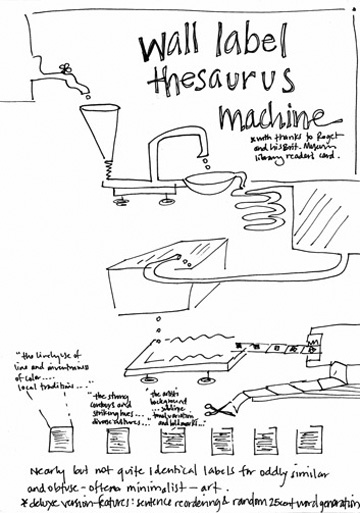 wall label
thesaurus
machine
*with thanks to Roget
and his Brit. Museum
library reader's card.
"the lively use of
line and
of color....
local traditions...."
"the strong
contours and
striking hues...
diverse cultures..."
the artist's
background
...sublime
tonal variation
and hallmarks..."
Nearly but not quite identical labels for oddly similar
and obtuse - often minimalist - art.
*deluxe version features: sentence reordering & random 25 cent word generation